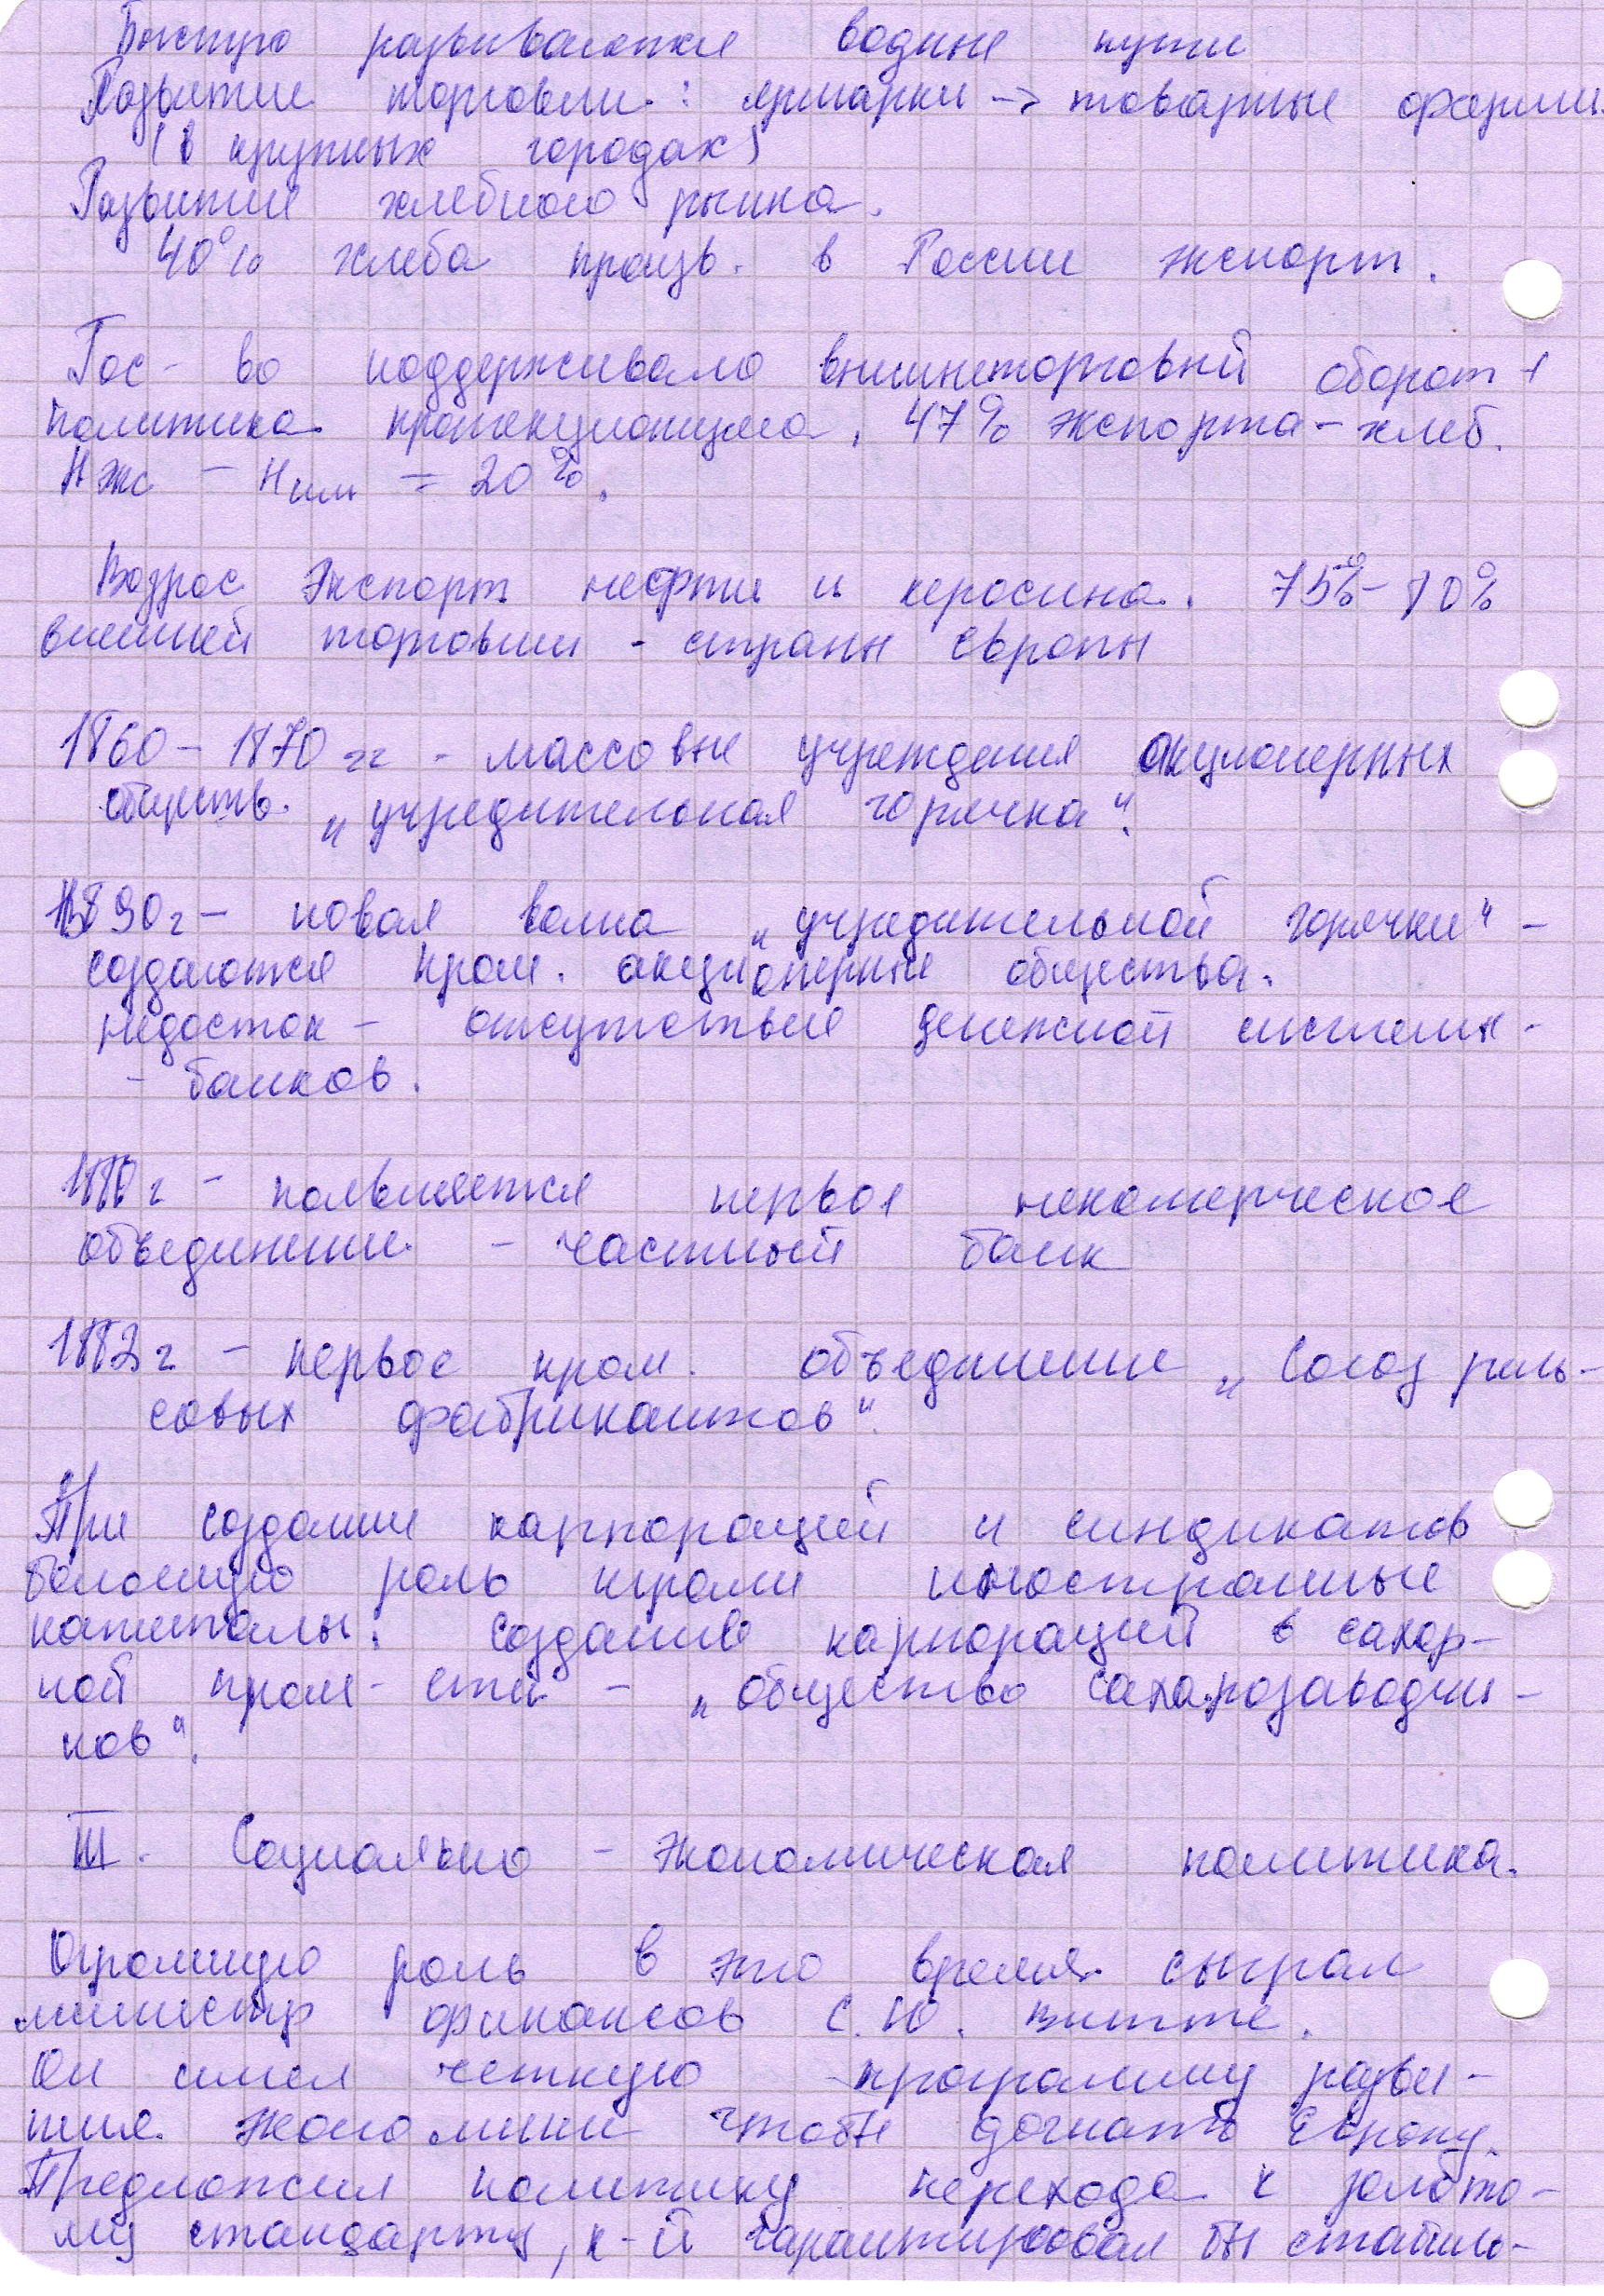 Быстро развиваются водные пути
Развитие торговли: ярмарки -> товарные фирмы
(в крупных городах)
Развитие хлебного рынка.
40% хлеба произв. в России экспорт.
Гос-во поддерживало внешнеторговый оборот +
политика протекционизма. 47% экспорта - хлеб.
Нэкс - Ним = 20%.
Возрос экспорт нефти и керосина. 75%-80%
внешней торговли - страны Европы
1860-1870 гг - массовые учреждения акционерных
обществ. „учредительская горячка".
1890г - новая волна „учредительной горячки" -
создаются пром. акционерные общества.
недостаток - отсутствие денежной системы -
- банков.
1880г - появляется первое некомерческое
объединение - частный банк
1882г - первое пром. объединение „Союз рель-
совых фабрикантов".
При создании карпораций и синдикатов
большую роль играли иностранные
капиталы. Создание карпораций в сахар-
ной пром-сти - „общество сахарозаводчи-
ков".
III. Социально - экономическая политика.
Огромную роль в это время сыграл
министр финансов С.Ю. Витте.
Он имел четкую программу разви-
тия экономики чтобы догнать Европу.
Предложил политику перехода к золото-
му стандарту, к-й гарантировал бы стабиль-